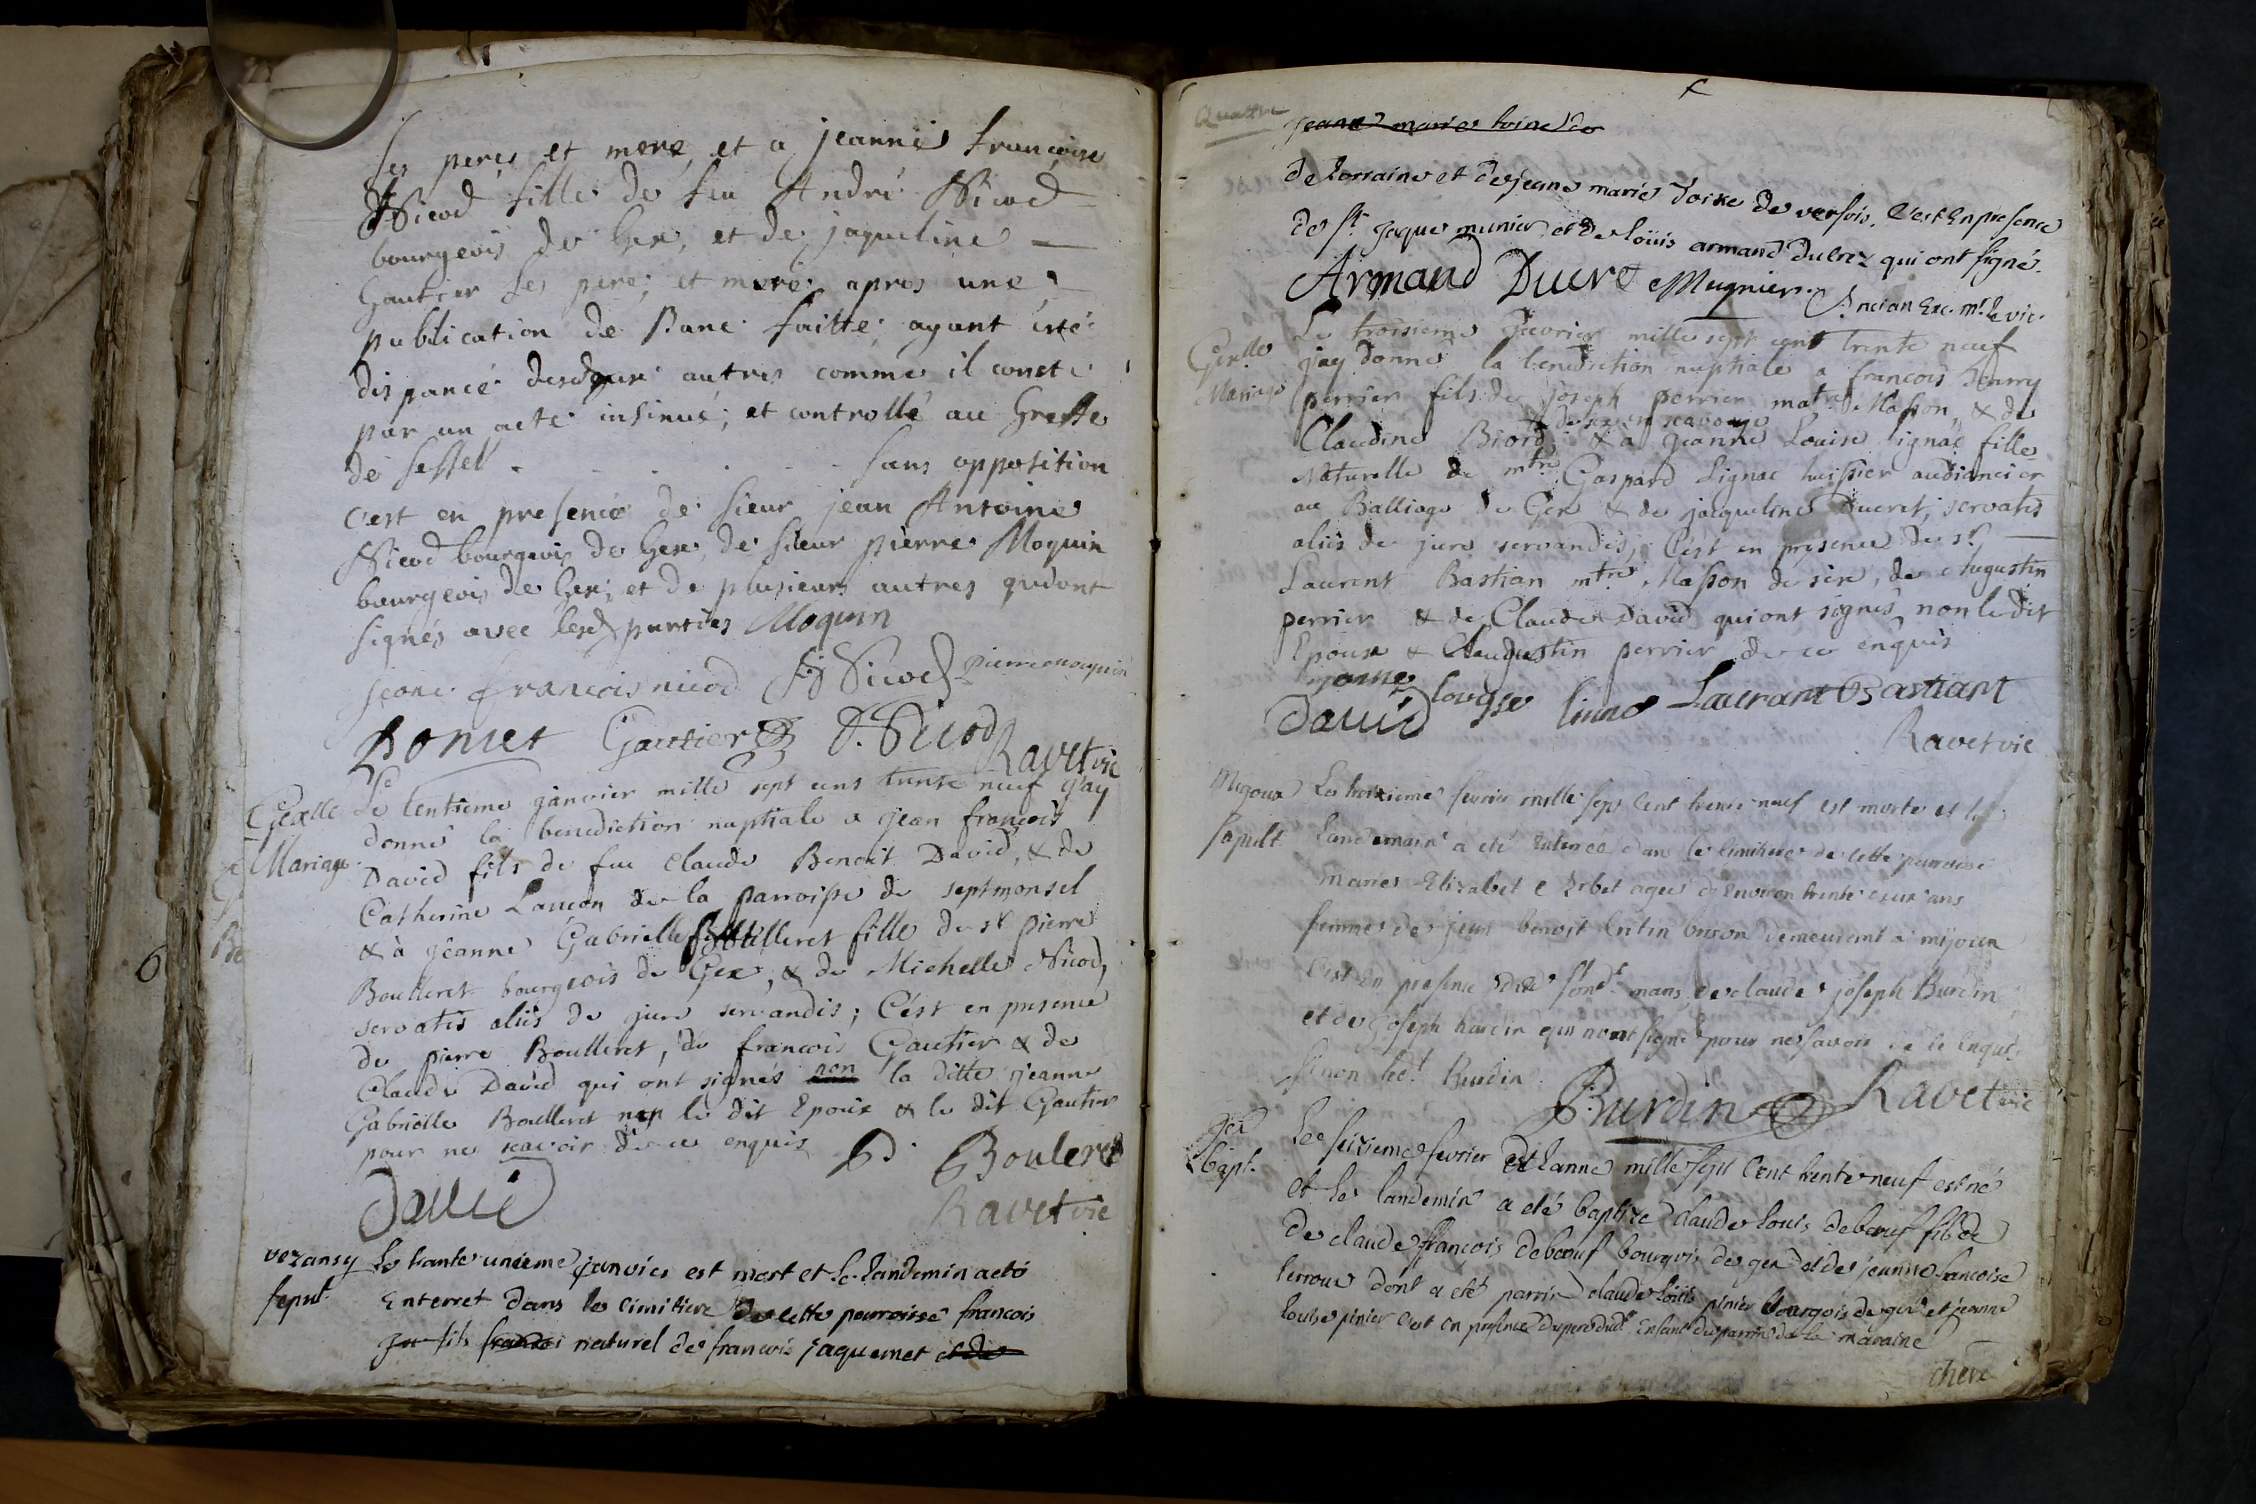 ses peres et mere, et a jeanne francoise
Nicod fille de feu André Nicod
bourgeois de Gex, et de jaqueline
Gautier ses pere; et mere; apres une
publication de Banc faitte; ayant été
dispancé desd deux autres comme il conste
par un acte insinué; et controllé au Greffe
de sessel . . . . . sans opposition
c'est en presence de sieur jean Antoine
Nicod bourgeois de Gex, de sieur pierre Moquin
bourgeois de Gex; et de plusieurs autres qui ont
signés avec lesd parties Moquin
jeane francois nicod Nicod pierre moquin
Bomet Gautier Nicod
Ravet vic
Gexlle
Mariage
Le trentieme janvier mille sept cens trente neuf j'ay
donné la benediction nuptiale a jean francois
David fils de feu Claude Benoit David, & de
Catherine Lancon de la parroisse de septmonsel
& à jeanne Gabrielle Boulleret fille de sr pierre
Boulleret bourgeois de Gex, & de Michelle Nicod,
servatis aliis de jure servandis; C'ést en presence
de pierre Boulleret, de francois Gautier & de
Claude David qui ont signés non la ditte jeanne
Gabrielle Boulleret non le dit Epoux & le dit Gautier
pour ne scavoir de ce enquis
P. Bouleret
David
Ravet vic
vezansy
sepult
Le trante unieme janvier est mort et le landemin a eté
Enterret dans le cimitiere de cette parroisse francois
fils naturel de francois jaquemet et de
Quattre
jeane marie
de Lorraine et de jeane marie doixe de versois. C'est En presence
de sr jaque munier et de loüis armand ducrez qui ont signé.
Armand Ducret Mugnier Ancian Exc. mr le vic.
Gexlle
Mariage
Le troisieme fevrier mille sept cent trente neuf
j'ay donné la benediction nuptiale a francois henry
perrier fils de joseph perrier matre Masson & de
de six en scavoye
Claudine Biord & a jeanne Louise Lignac fille
Naturelle de mtre Gaspard Lignac huissier audiancier
au Balliage de Gex & de jacqueline Ducret, servatis
aliis de jure servandis; C'ést en présence de sr
Laurent Bastian mtre Masson de sixe, de Augustin
perrier & de Claude David qui ont signés non le dit
Epoux & Augustin perrier de ce enquis
jeanne
David louyse Laurant Bastiant
Ravet vic
Mijoux
sepult
Le troisieme fevrier mille sept Cent trente neuf est morte et le
landemain a eté enterree dans le cimitiere de cette parroisse
marie Elizabet agee d'Environ trente ans
femme de jean benoit demeurent a mijoux
C'est En presence dud mary de claude joseph Burdin
et de joseph qui n'ont signé pour ne savoir de ce Enquis
sinon led. Burdin
Burdin Ravet vic
Gex
Bapt.
Le seizieme fevrier de Lanne mille sept Cent trente neuf est né
et le landemin a eté baptize claude louis deboeuf fils de
de claude françois deboeuf bourgois de gex et de jeanne francoise
lerroux dont a eté parrin claude loüis pinier bourgois de gex et jeanne
louise pinier C'est en presence du pere dudt Enfant du parrin de la maraine